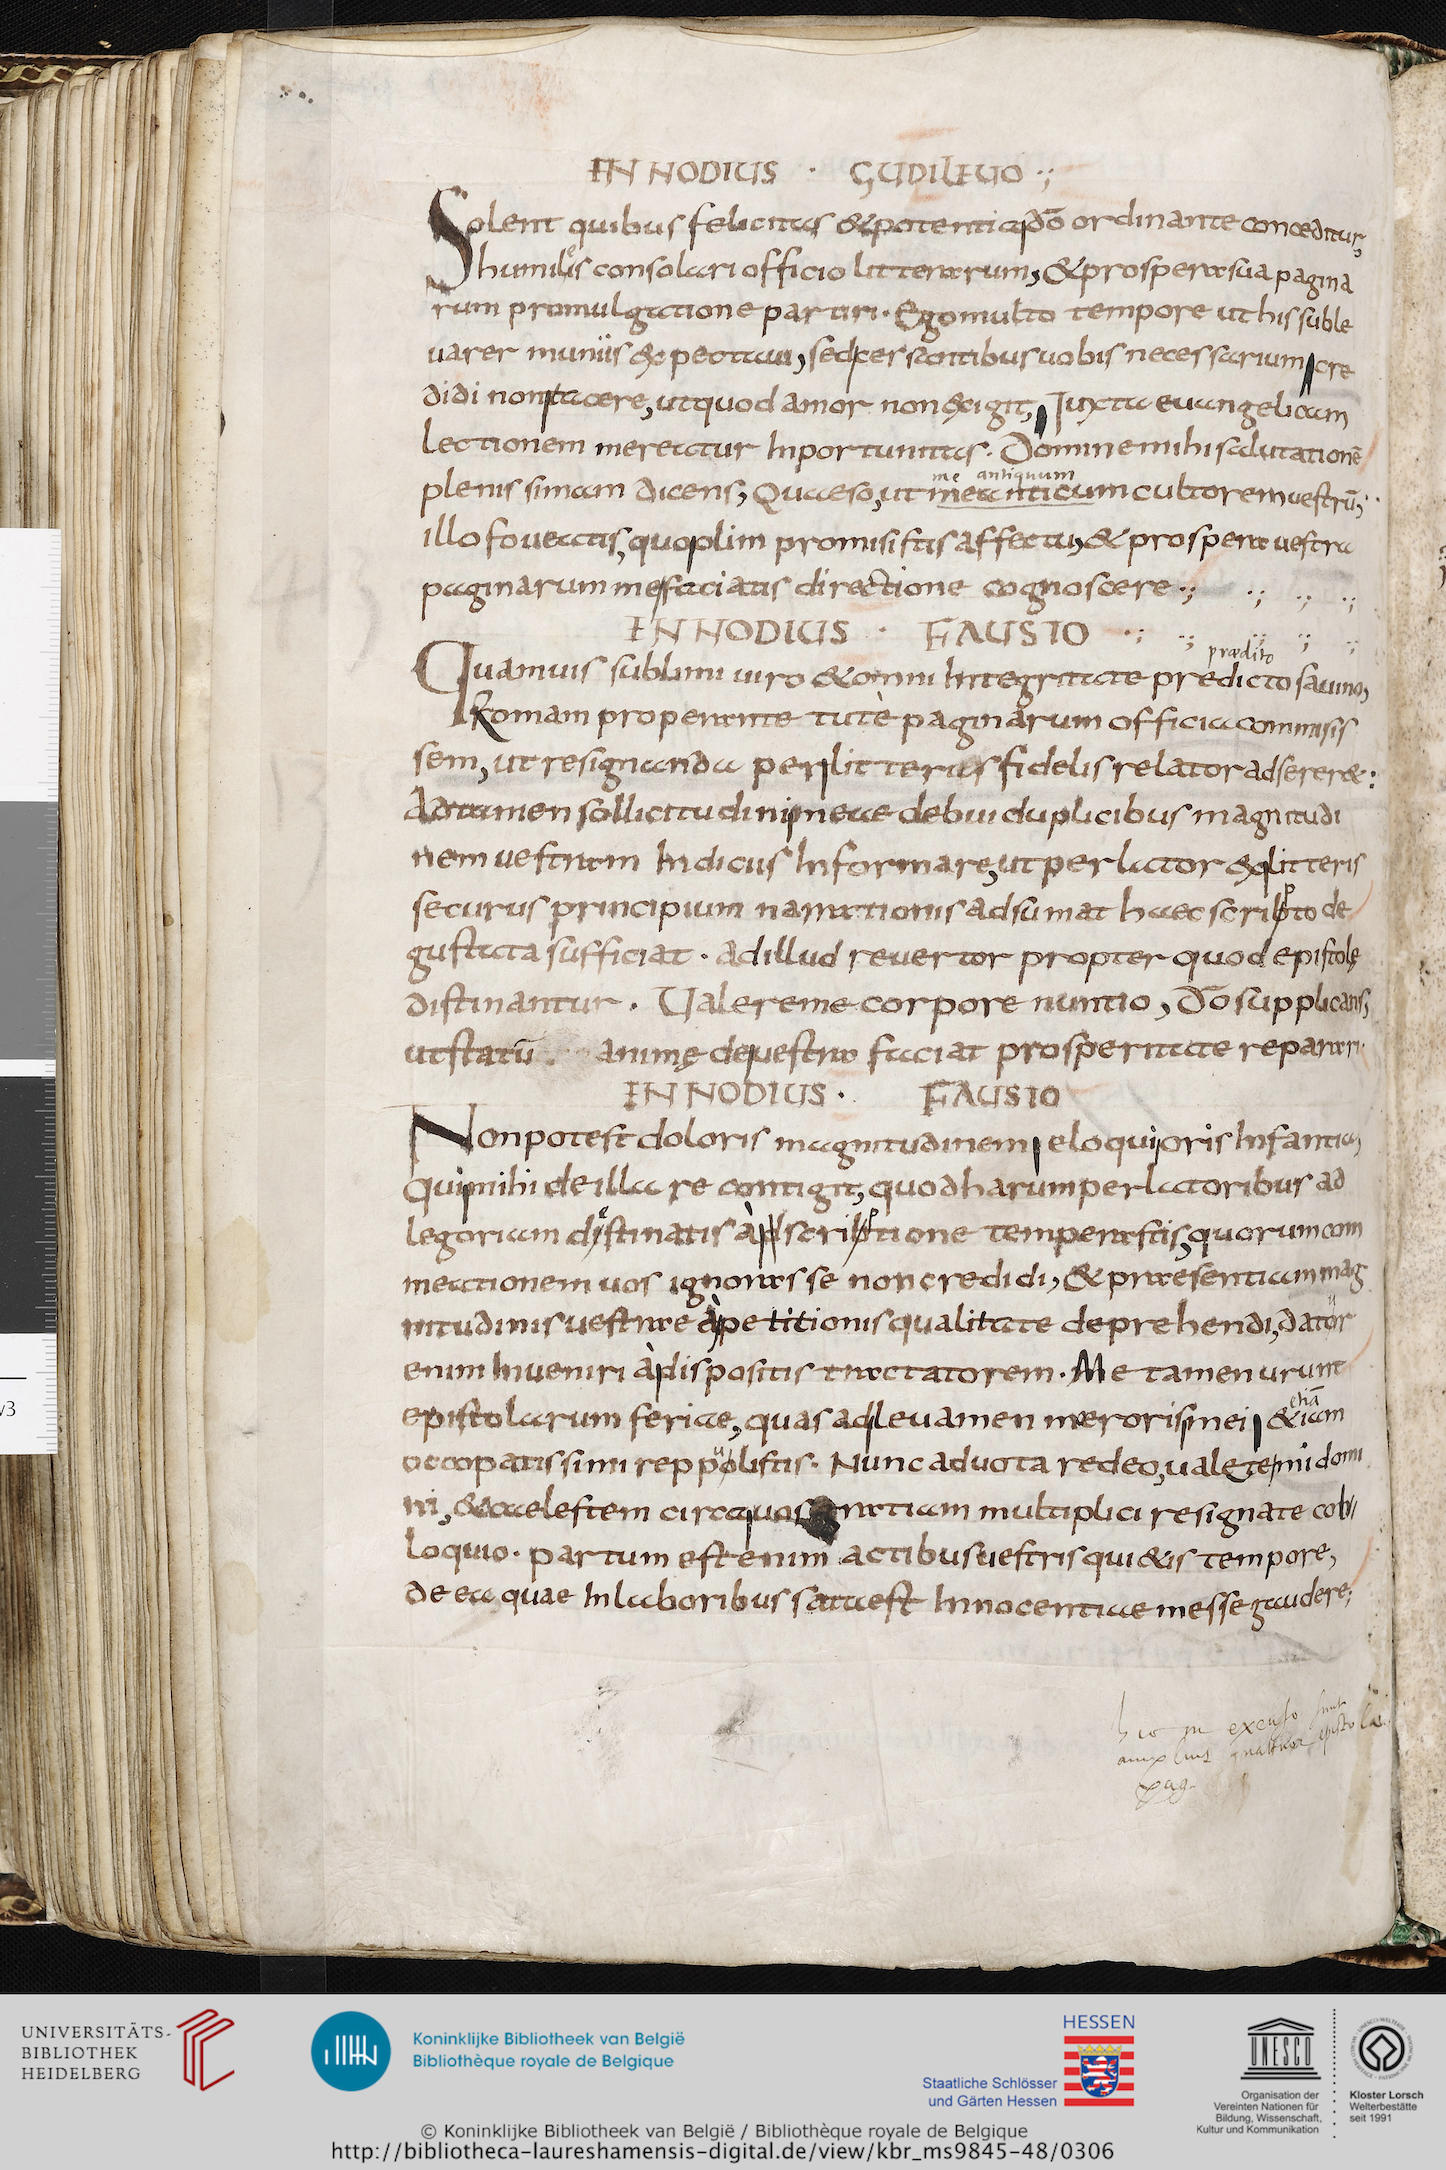 INNODIUS · GUDILEUO ·;
Solent quibus felicitas & potentia dō ordinante conceditur;
humiles consolari officio litterarum, & prospera sua pagina
rum promulgatione partiri. Ego multo tempore ut his suble
uarer muniis expectaui, sed cersantibus uobis necessarium cre
didi non tacere, ut quod amor non exigit, Iuxta euangelicam
lectionem mereatur Inportunitas. Domine mihi salutationē
me antiquum
plenissimam dicens, Quaeso, ut meanticum cultorem uestrū;
illo foueatis, quo olim promisistis affectu, & prospera uestra
paginarum me faciatis directione cognoscere ·; ·; ·; ·;
INNODIUS · FAUSTO ·; ·; ·; ·; ·;
prædito
Quamuis sublimi uiro & omni Integritate predicto sauino,
Romam properante tutè paginarum officia commisis
sem, ut resignanda per litteras fidelis relator adsereret:
Adtamen sollicitudinis meae debui duplicibus magnitudi
nem uestram Indiciis Informare, ut perlator ex litteris
securus principium narrationis adsumat haec scribto de
gustata sufficiat. ad illud reuertor propter quod epistolę
distinantur. Ualere me corpore nuntio, dō supplicans,
ut statū animę de uestra faciat prosperitate reparari.
INNODIUS · FAUSTO
Non potest doloris magnitudinem eloqui oris Infantia,
qui mihi de illa re contigit, quod harum perlatoribus ad
legoriam distinatis adscribtione temperastis, quorum com
meationem uos ignorasse non credidi, & praesentiam mag
nitudinis uestrae àpetitionis qualitate deprehendi, dator
enim Inueniri àdispositis tractatorem. Me tamen urunt
etiā
epistolarum feriae, quas ad leuamen meroris mei & iam
occopatissimi reppolistis. Nunc aducta redeo, ualete mi domi
ni, & caelestem circa uos gratiam multiplici resignate con
loquio. partum est enim actibus uestris qui&is tempore,
de ea quae In laboribus sata est Innocentiae messe gaudere;
hic in excuso sunt
amplius quattuor epistolae
pag.
UNIVERSITÄTS-
BIBLIOTHEK
HEIDELBERG
Koninklijke Bibliotheek van België
Bibliothèque royale de Belgique
HESSEN
Staatliche Schlösser
und Gärten Hessen
UNESCO
Organisation der
Vereinten Nationen für
Bildung, Wissenschaft,
Kultur und Kommunikation
Kloster Lorsch
Welterbestätte
seit 1991
© Koninklijke Bibliotheek van België / Bibliothèque royale de Belgique
http://bibliotheca-laureshamensis-digital.de/view/kbr_ms9845-48/0306